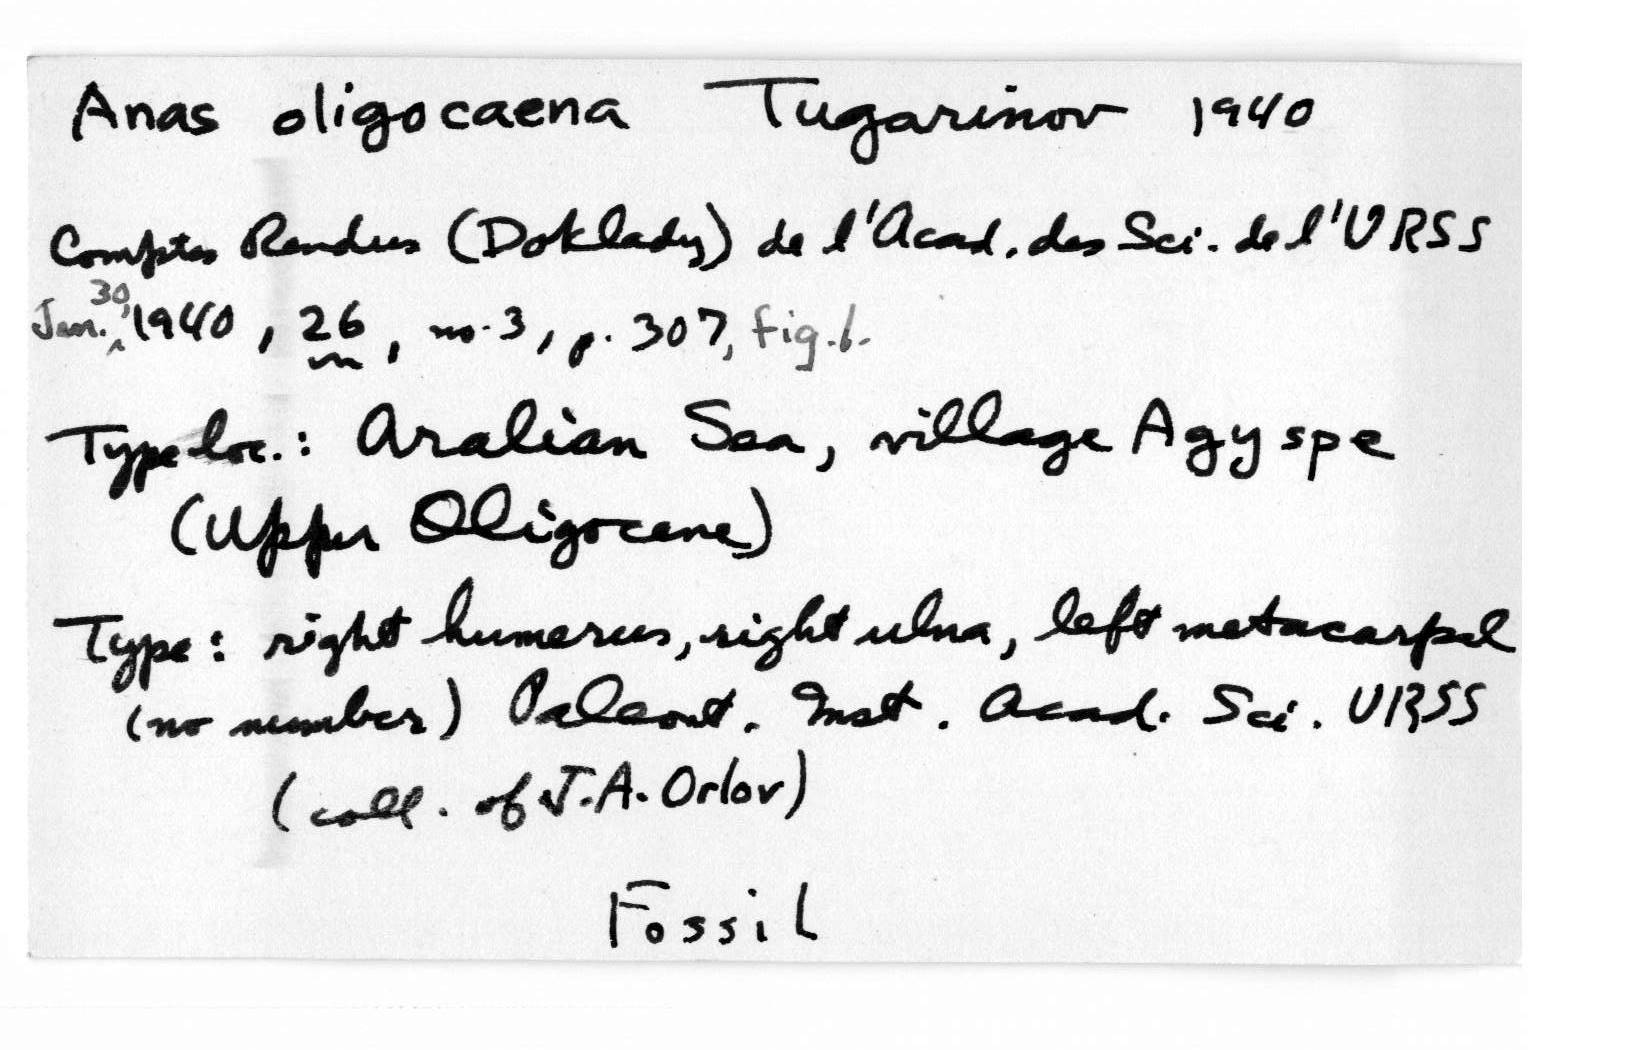 Anas oligocaena Tugarinov 1940
Comptes Rendus (Doklady) de l'Acad. des Sci. de l'URSS
Jan. 30, 1940, 26, no. 3, p. 307, fig. 1.
Type loc.: Aralian Sea, village Agyspe
(Upper Oligocene)
Type: right humerus, right ulna, left metacarpal
(no number) Paleont. Inst. Acad. Sci. URSS
(coll. of J.A. Orlov)
Fossil